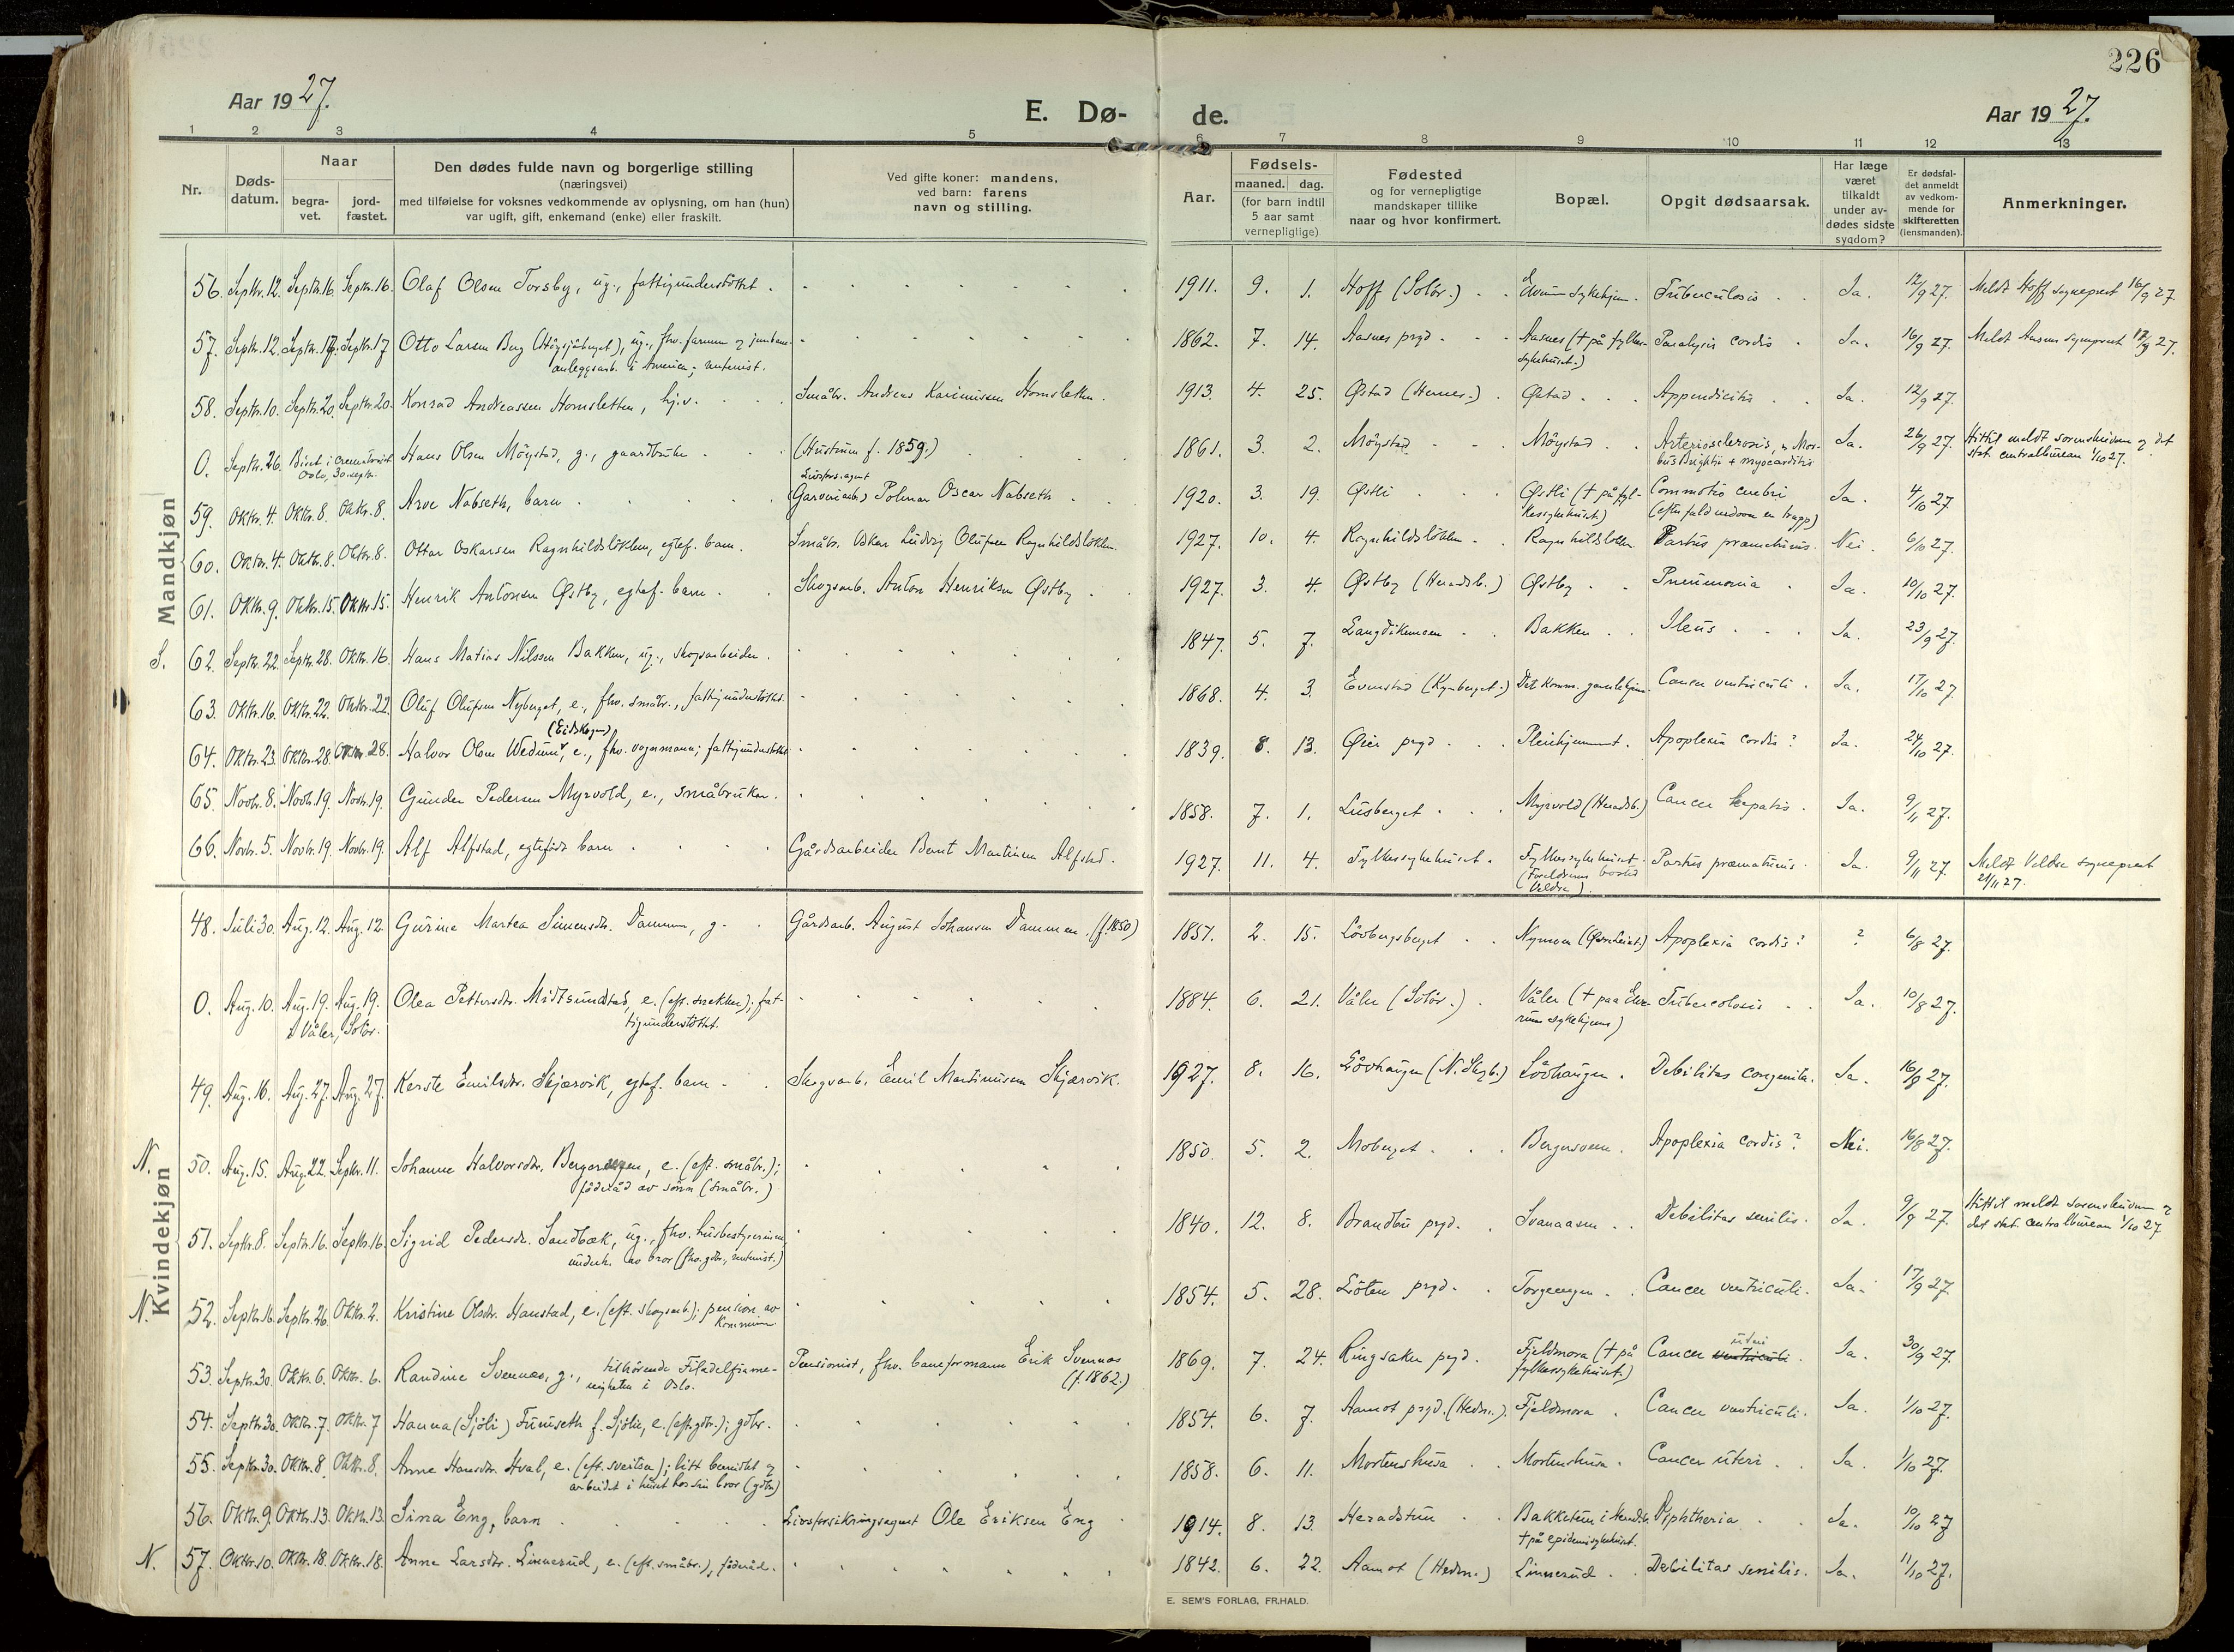 226
Aar 1927.
E. Dø-
de.
Aar 1927.
1 2 3 4 5 6 7 8 9 10 11 12 13
Nr.
Døds-
datum.
Naar
begra-
vet.
jord-
fæstet.
Den dødes fulde navn og borgerlige stilling
(næringsvei)
med tilføielse for voksnes vedkommende av oplysning, om han (hun)
var ugift, gift, enkemand (enke) eller fraskilt.
Ved gifte koner: mandens,
ved barn: farens
navn og stilling.
Aar.
Fødsels-
maaned. dag.
(for barn indtil
5 aar samt
vernepligtige)
Fødested
og for vernepligtige
mandskaper tillike
naar og hvor konfirmert.
Bopæl.
Opgit dødsaarsak.
Har læge
været
tilkaldt
under av-
dødes sidste
sygdom?
Er dødsfal-
det anmeldt
av vedkom-
mende for
skifteretten
(lensmanden).
Anmerkninger.
Mandkjøn
56. Septbr. 12. Septbr. 16. Septbr. 16. Olaf Olsen Torsby, ug., fattigunderstöttet. 1911. 9. 1. Hoff (Solör.) Elverum sykehjem. Tuberculosis Ja. 12/9 27. Meldt Hoff sogneprest 16/9 27.
57. Septbr. 12. Septbr. 17. Septbr. 17 Otto Larsen Berg (Högsjöberget), ug., fhv. farmer og jernban-
anleggsarb. i America; rentenist. 1862. 7. 14. Aasnes prgd. Aasnes († på fylkes-
sykehuset.) Paralysis cordis Ja. 16/9 27. Meldt Aasnes sogneprest 17/9 27.
58. Septbr. 10. Septbr. 20. Septbr. 20. Konrad Andreassen Hornsletten, hj.v. Småbr. Andreas Kariniussen Hornsletten. 1913. 4. 25. Østad (Hernes.) Østad Appendicitis Ja. 12/9 27.
0. Septbr. 26. Bisat i crematoriet
Oslo, 30. septbr. Hans Olsen Möystad, g., gaardbruker (Hustruen f. 1859.) 1861. 3. 2. Möystad Möystad Arteriosclerosis, Mor-
bus Brightii + myocarditis Ja. 26/9 27. Hittil meldt sorenskriveren og det
stat. centralbureau 1/10 27.
59. Oktbr. 4. Oktbr. 8. Oktbr. 8. Arve Nabseth, barn Livsfors.agent
(Garveriarb.) Polmar Oscar Nabseth 1920. 3. 19. Østli Østli († på fyl-
kessykehuset) Commotio cerebri
(efter fald nedover en trapp) Ja. 4/10 27
60. Oktbr. 4. Oktbr. 8. Oktbr. 8. Ottar Oskarsen Ragnhildslökken, egtef. barn. Småbr. Oskar Ludvig Olufsen Ragnhildslökken. 1927. 10. 4. Ragnhildslökken Ragnhildslökken Partus præmaturus. Nei. 6/10 27.
61. Oktbr. 9. Oktbr. 15. Oktbr. 15. Henrik Antonsen Østby, egtef. barn Skogsarb. Anton Henriksen Østby 1927. 3. 4. Østby (Heradsb.) Østby Pneumonia Ja. 10/10 27.
S. 62. Septbr. 22. Septbr. 28. Oktbr. 16. Hans Matias Nilssen Bakken, ug., skogsarbeider. 1847. 5. 7. Langdikemoen Bakken Ileus Ja. 23/9 27.
63. Oktbr. 16. Oktbr. 22. Oktbr. 22. Oluf Olufsen Nyberget, e., fhv. småbr., fattigunderstöttet. 1868. 4. 3. Evenstad (Kynberget.) Det komm. gamlehjem. Cancer ventriculi. Ja. 17/10 27.
64. Oktbr. 23. Oktbr. 28. Oktbr. 28. (Eidskogen)
Halvor Olsen Wedum, e., fhv. vognmann; fattigunderstöttet 1839. 8. 13. Øier prgd Pleiehjemmet. Apoplexia cordis? Ja. 24/10 27.
65. Novbr. 8. Novbr. 19. Novbr. 19. Gunder Pedersen Myrvold, e., småbruker. 1858. 7. 1. Lusberget Myrvold (Heradsb.) Cancer hepatis. Ja. 9/11 27.
66. Novbr. 5. Novbr. 19. Novbr. 19 Alf Alfstad, egtefödt barn Gårdsarbeider Bernt Martinsen Alfstad. 1927. 11. 4. Fylkessykehuset. Fylkessykehuset.
(Foreldrenes bosted
Veldre) Partus præmaturus. Ja. 9/11 27. Meldt Veldre sogneprest
21/11 27.
Kvindekjøn
48. Juli 30. Aug. 12. Aug. 12. Gurine Martea Simensdtr. Dammen, g. Gårdsarb. August Johansen Dammen. (f. 1850) 1857. 2. 15. Lövbergsberget Nymoen Apoplexia cordis? ? 6/8 27.
0. Aug. 10. Aug. 19. Aug. 19.
i Våler, Solör. Olea Pettersdtr. Midtsundstad, e. (eft. snekker); fat-
tigunderstöttet. 1884. 6. 21. Våler (Solör.) Våler († paa Elve-
rum sykehjem) Tuberculosis Ja. 10/8 27.
49. Aug. 16. Aug. 27. Aug. 27. Kerste Emilsdtr. Skjærvik, egtef. barn Skogsarb. Emil Martinusen Skjærvik. 1927. 8. 16. Lövhaugen (N. Skgb.) Lövhaugen. Debilitas congenita. Ja. 16/8 27.
N. 50. Aug. 15. Aug. 22. Septbr. 11. Johanne Halvorsdtr. Bergersveen, e. (eft. småbr.);
föderåd av sönn (småbr.) 1850. 5. 2. Moberget Bergersveen. Apoplexia cordis? Nei. 16/8 27.
51. Septbr. 8. Septbr. 16. Septbr. 16. Sigrid Pedersdtr. Sandbæk, ug., fhv. husbestyrerinne,
underh. av bror (fhv. gdbr., rentenist.) 1840. 12. 8. Brandbu prgd. Svanaasen Debilitas senilis. Ja. 9/9 27. Hittil meldt sorenskriveren og
det stat. centralbureau 1/10 27
N. 52. Septbr. 16. Septbr. 26. Oktbr. 2. Kristine Olsdtr. Hanstad, e. (eft. skogsarb.); pension av
kommunen. 1854. 5. 28. Löten prgd. Torgerengen Cancer ventriculi. Ja. 17/9 27.
53. Septbr. 30. Oktbr. 6. Oktbr. 6. Randine Svennæs, g., tilhörende Filadelfiame-
nigheten i Oslo. Pensionist, fhv. baneformann Erik Svennæs
(f. 1862.) 1869. 7. 24. Ringsaker prgd. Fjeldmora († på
fylkessykehuset.) Cancer uteri ventriculi. Ja. 30/9 27.
54. Septbr. 30. Oktbr. 7. Oktbr. 7 Hanna (Sjöli) Furuseth f. Sjölie, e. (eft. gdbr.); gdbr. 1854. 6. 7. Aamot prgd. (Hedm.) Fjeldmora Cancer ventriculi. Ja. 1/10 27.
55. Septbr. 30. Oktbr. 8. Oktbr. 8. Anne Hansdtr. Hval, e. (eft. sveitser); litt bemidlet og
arbeidet i huset hos sin bror (gdbr.) 1858. 6. 11. Mortenshusa Mortenshusa. Cancer uteri Ja. 1/10 27.
56. Oktbr. 9. Oktbr. 13. Oktbr. 13. Sina Eng, barn Livsforsikringsagent Ole Eriksen Eng 1914. 8. 13. Heradstun Bakketun i Heradsb.
† på epidemisykehuset. Diphtheria Ja. 10/10 27
N. 57. Oktbr. 10. Oktbr. 18. Oktbr. 18. Anne Larsdtr. Linnerud, e. (eft. småbr.), föderåd. 1842. 6. 22. Aamot (Hedm.) Linnerud Debilitas senilis. Ja. 11/10 27.
E. SEM'S FORLAG, FR.HALD.